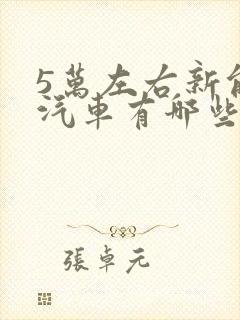 5萬左右新能
汽車有哪些
張卓元